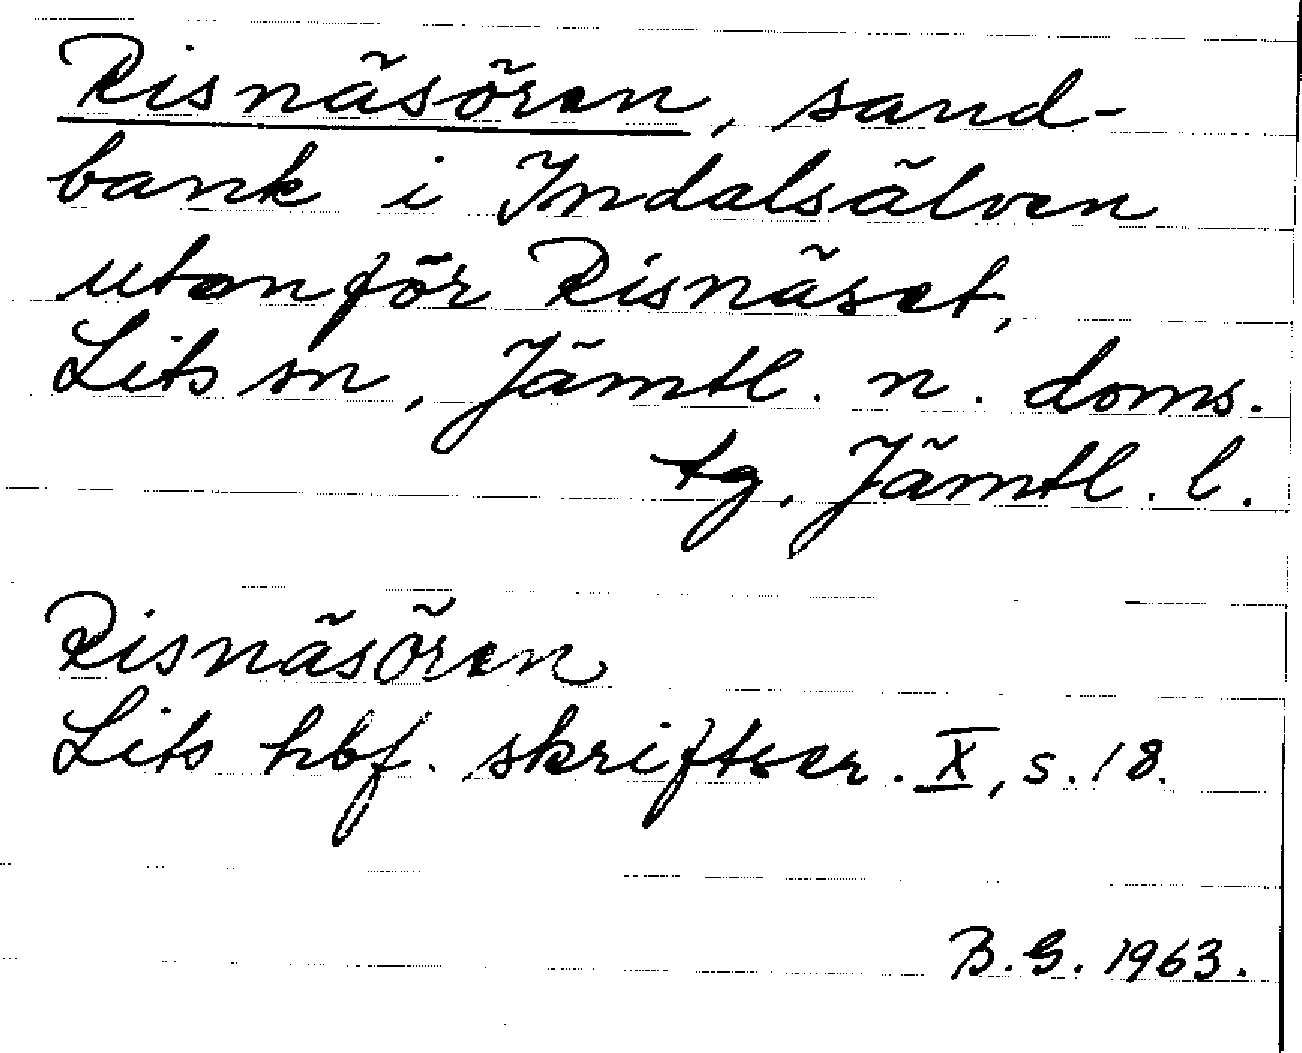 Risnäsören, sand-
bank i Indalsälven
utanför Risnäset,
Lits sn, Jämtl. n. doms.
tg, Jämtl. l.
Risnäsören
Lits hbf. skriftser. X, s. 18.
B.G. 1963.